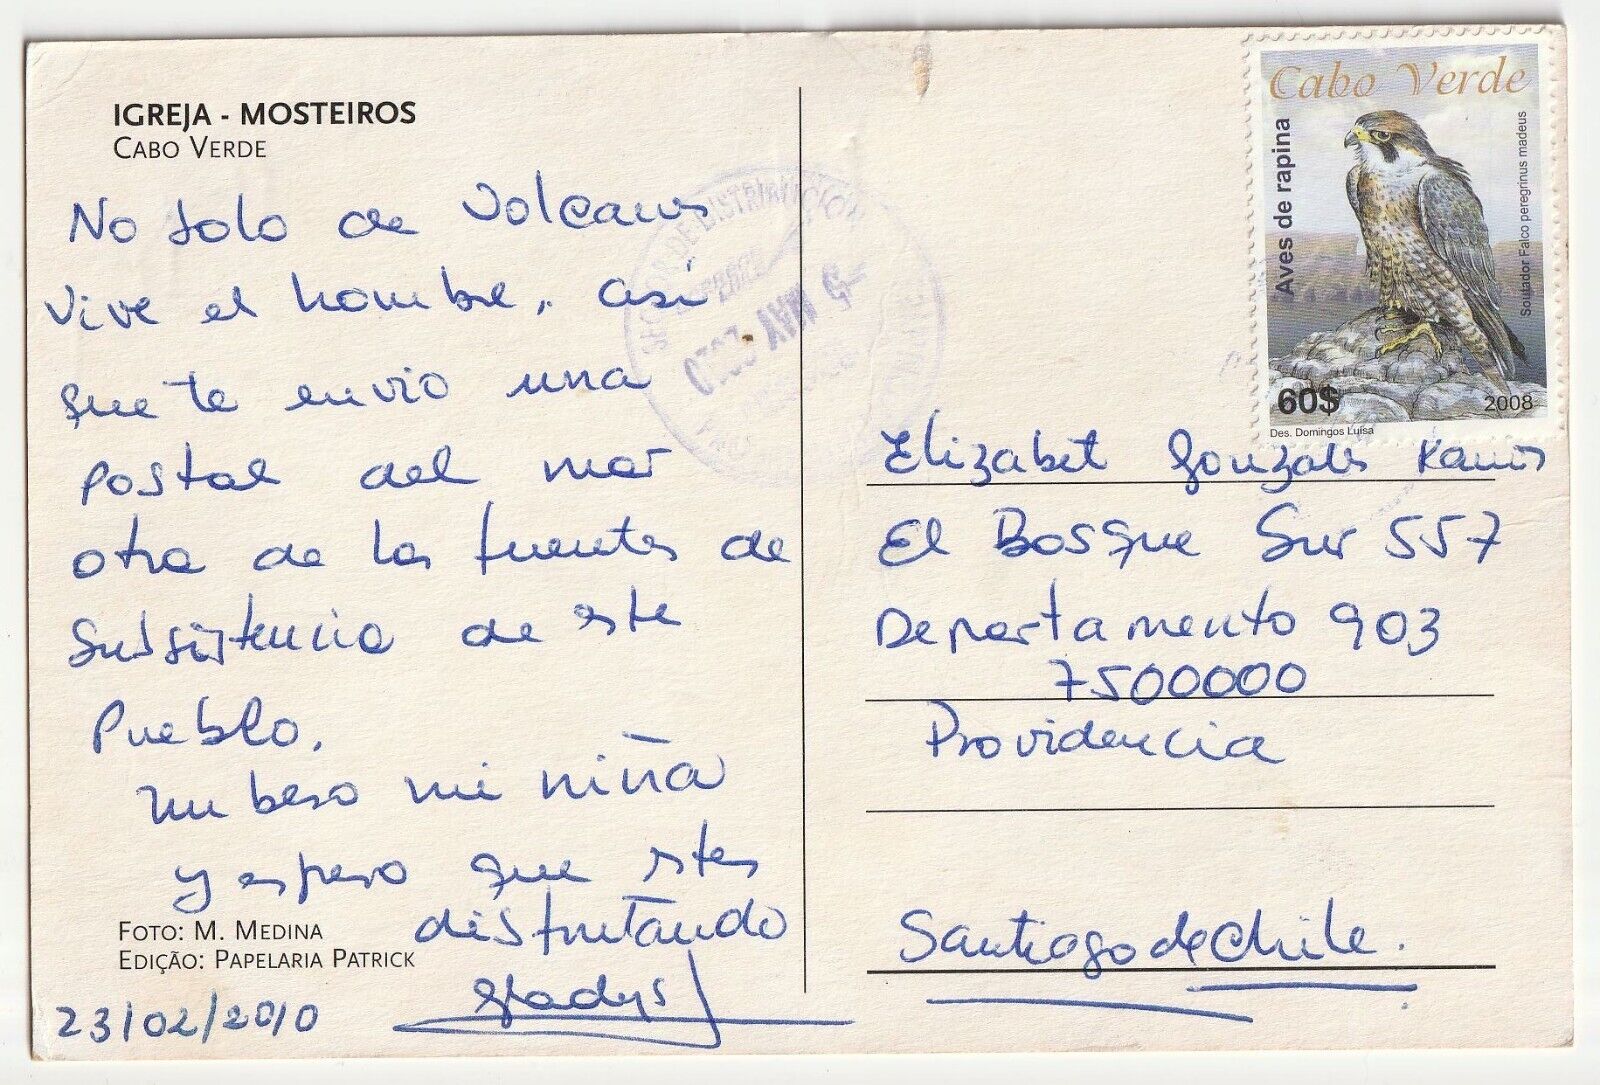 IGREJA - MOSTEIROS
CABO VERDE
No solo de Volcanes
vive el hombre, así
que te envio una
postal del mar
otra de las fuentes de
subsistencia de este
Pueblo.
un beso mi niña
y espero que estes
disfrutando
Gladys
FOTO: M. MEDINA
EDIÇÃO: PAPELARIA PATRICK
23/02/2010
SECTOR DE DISTRIBUCION
-5 MAY 2010
Cabo Verde
Aves de rapina
Soutador Falco peregrinus madeus
60$
2008
Des. Domingos Luísa
Elizabet Gonzales Ramos
El Bosque Sur 557
Departamento 903
7500000
Providencia
Santiago de Chile.